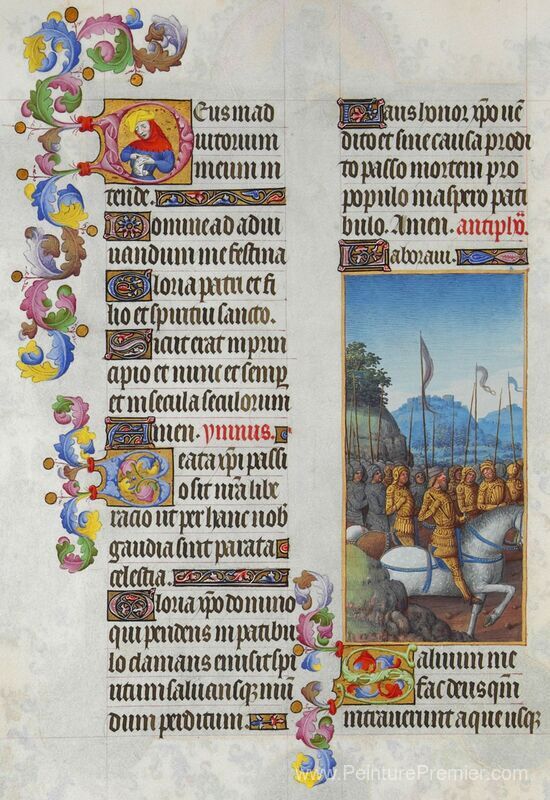 Deus in ad
iutorium
meum in
tende.
Domine ad adiu
uandum me festina
Gloria patri et fi
lio et spiritui sancto.
Sicut erat in prin
cipio et nunc et semp
et in secula seculorum
Amen. ymnus.
Beata xpi passi
o sit nra libe
racio ut per hanc nob
gaudia sint parata
celestia.
Gloria xpo domino
qui pendens in patibu
lo clamans emisit spi
mundum perditum.
Laus honor xpo
dito et sine causa prodi
to passo mortem pro
populo in aspero pati
bulo. Amen. antiphõ.
Laboraui.
Saluum me
fac deus qm
intrauerunt aque usq
www.PeinturePremier.com